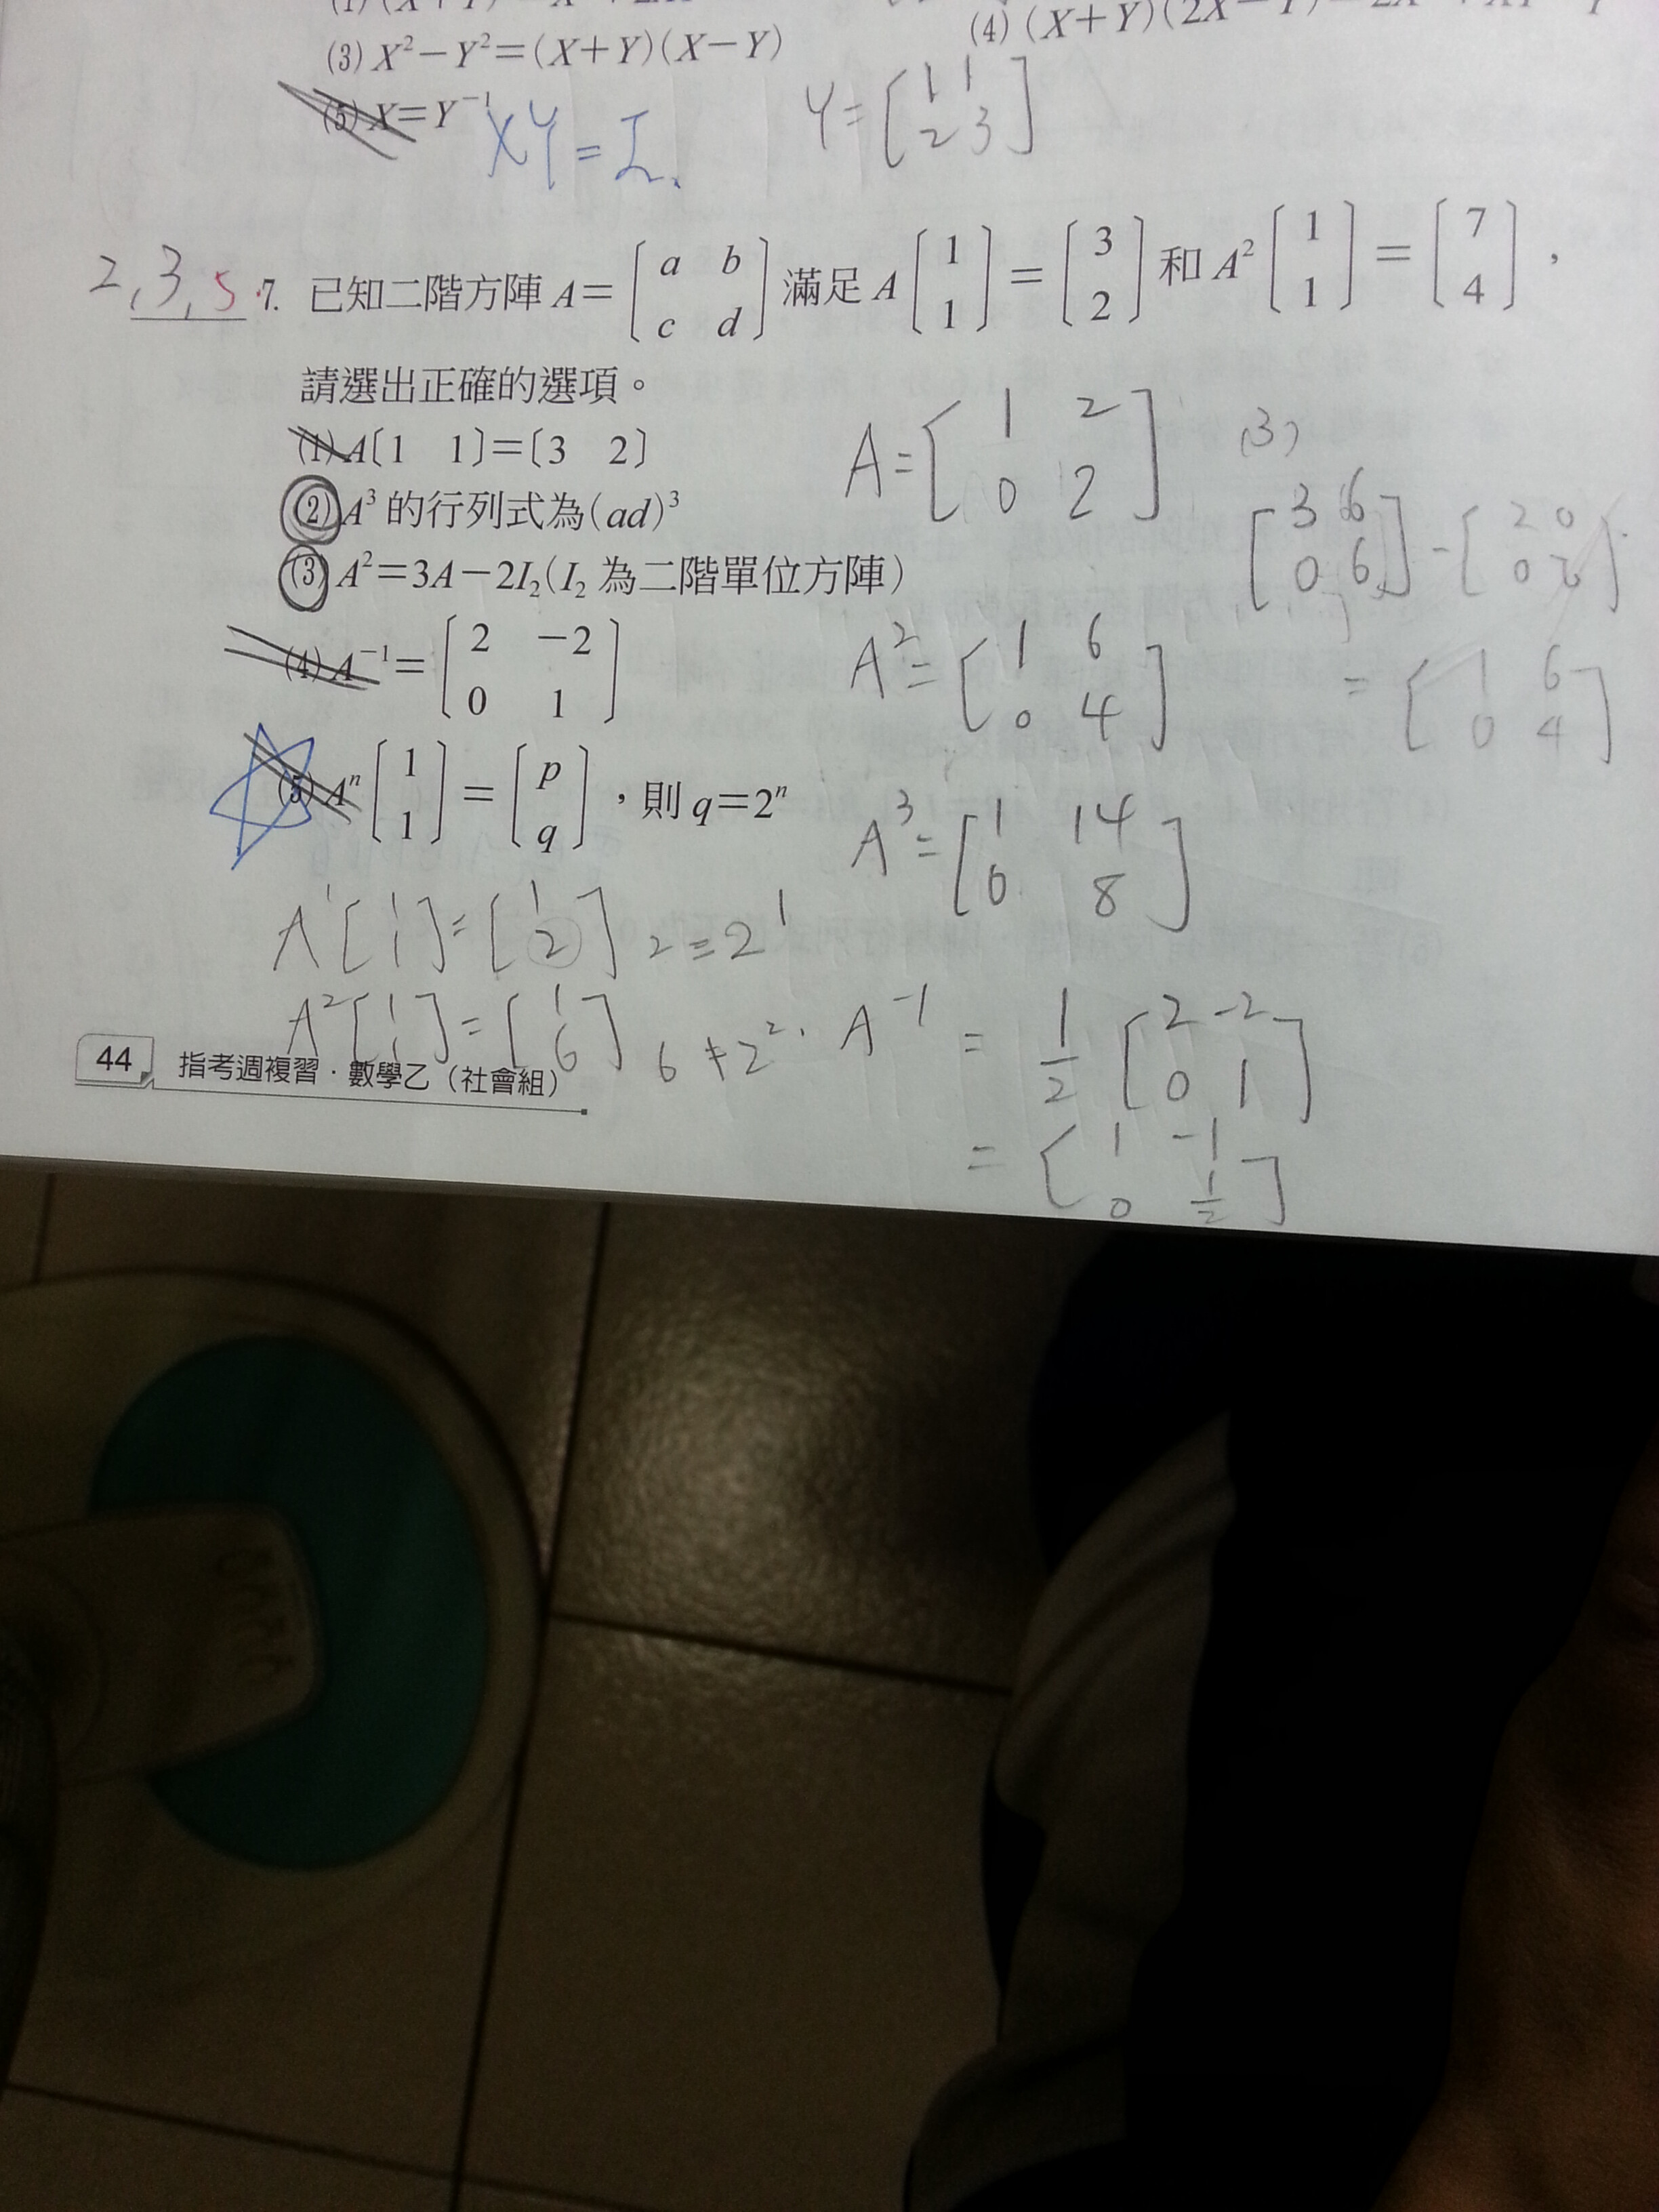 (3) X²−Y²=(X+Y)(X−Y)
(5) X=Y⁻¹
XY=I.
Y=[1 1
2 3]
2,3,5 7. 已知二階方陣 A=[a b
c d] 滿足 A[1
1]=[3
2] 和 A²[1
1]=[7
4],
請選出正確的選項。
(1) A[1 1]=[3 2]
(2) A³ 的行列式為(ad)³
(3) A²=3A−2I₂(I₂ 為二階單位方陣)
(4) A⁻¹=[2 −2
0 1]
(5) Aⁿ[1
1]=[p
q],則 q=2ⁿ
A=[1 2
0 2]
(3)
[3 6
0 6]-[2 0
0 2]
=[1 6
0 4]
A²=[1 6
0 4]
A³=[1 14
0 8]
A¹[1
1]=[1
2] 2=2¹
A²[1
1]=[1
6] 6≠2².
A⁻¹=1/2[2 -2
0 1]
=[1 -1
0 1/2]
44 指考週複習·數學乙(社會組)